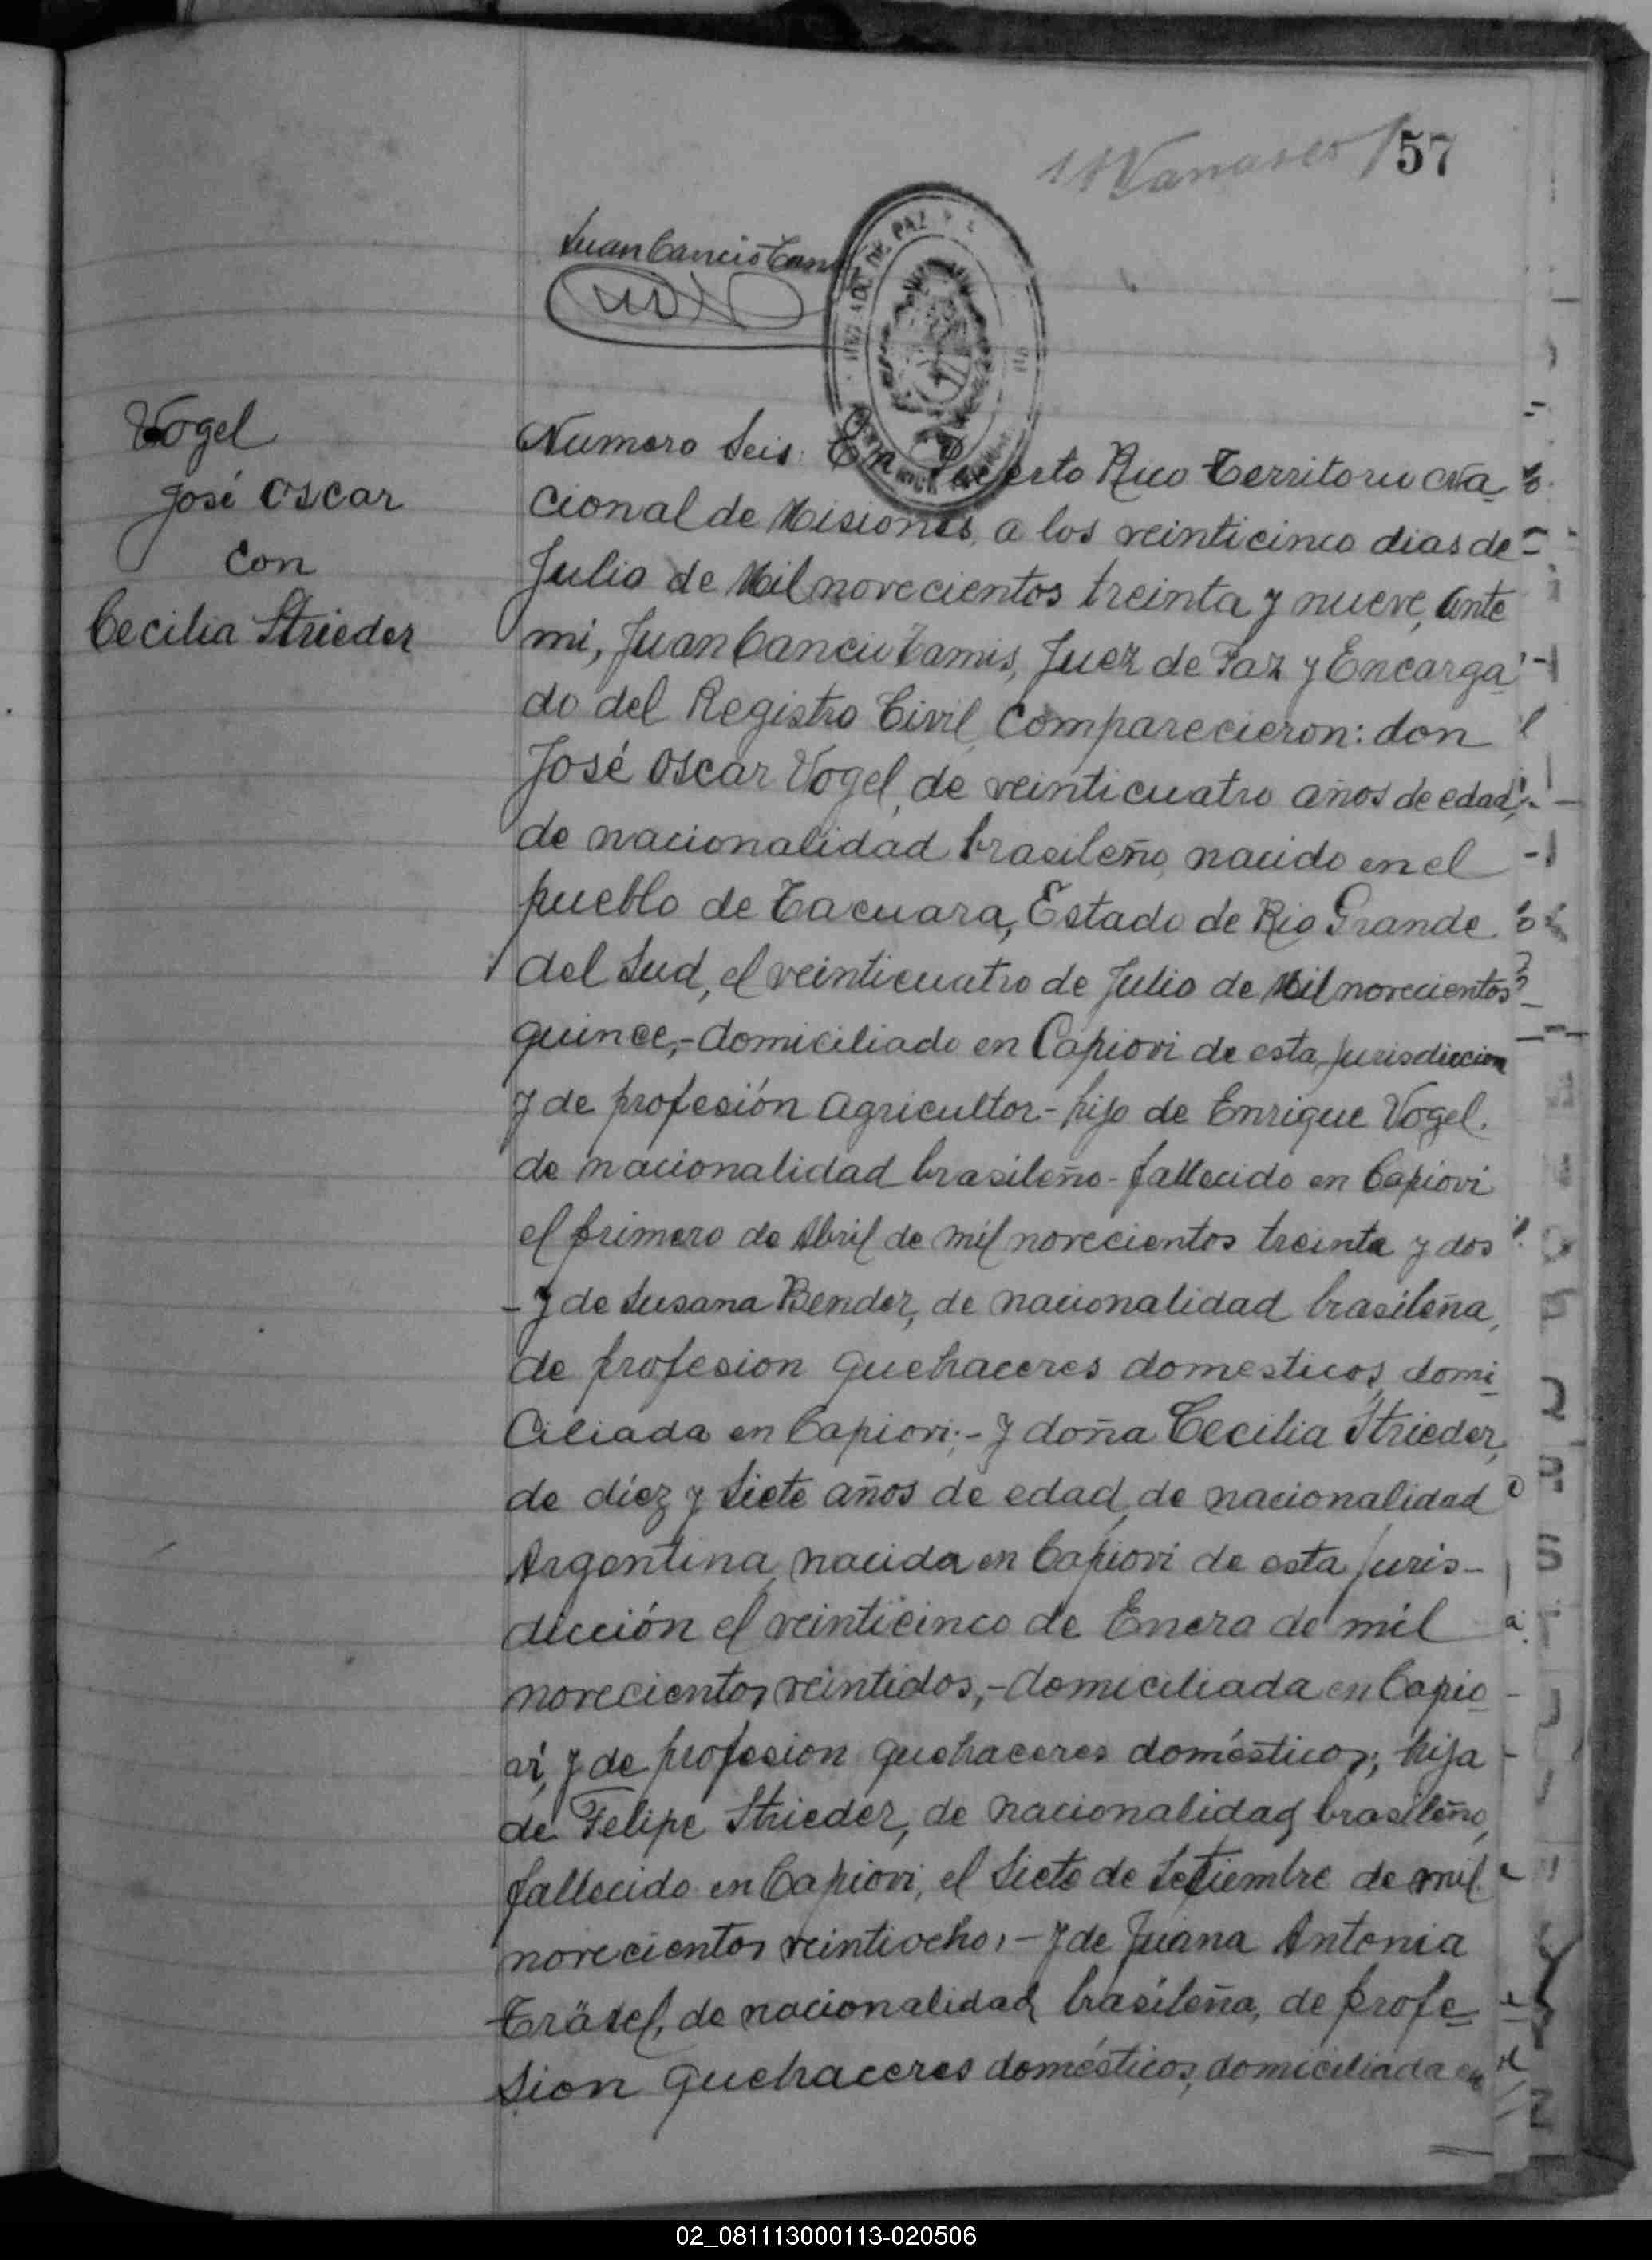 57
Juan Cancio
JUZGADO DE PAZ
Vogel
José Oscar
Con
Cecilia Strieder
Numero Seis: En Puerto Rico Territorio Na-
cional de Misiones, a los veinticinco dias de
Julio de Mil novecientos treinta y nueve, ante
mi, Juan Cancio Camis, Juez de Paz y Encarga-
do del Registro Civil, Comparecieron: don
José Oscar Vogel, de veinticuatro años de edad,
de nacionalidad brasileño, nacido en el
pueblo de Tacuara, Estado de Rio Grande
del Sud, el veinticuatro de Julio de Mil novecientos
quince,- domiciliado en Capiovi de esta jurisdiccion
y de profesión agricultor- hijo de Enrique Vogel.
de nacionalidad brasileño- fallecido en Capiovi
el primero de Abril de mil novecientos treinta y dos
- y de Susana Bender, de nacionalidad brasileña,
de profesion quehaceres domesticos, domi-
ciliada en Capiovi;- y doña Cecilia Strieder,
de diez y siete años de edad, de nacionalidad
Argentina, nacida en Capiovi de esta juris-
dicción el veinticinco de Enero de mil
novecientos veintidos,- domiciliada en Capio-
vi, y de profesion quehaceres domésticos; hija
de Felipe Strieder, de nacionalidad brasileño,
fallecido en Capiovi, el siete de Setiembre de mil
novecientos veintiocho,- y de Juana Antonia
Träsel, de nacionalidad brasileña, de profe-
sion quehaceres domésticos, domiciliada en
02_081113000113-020506